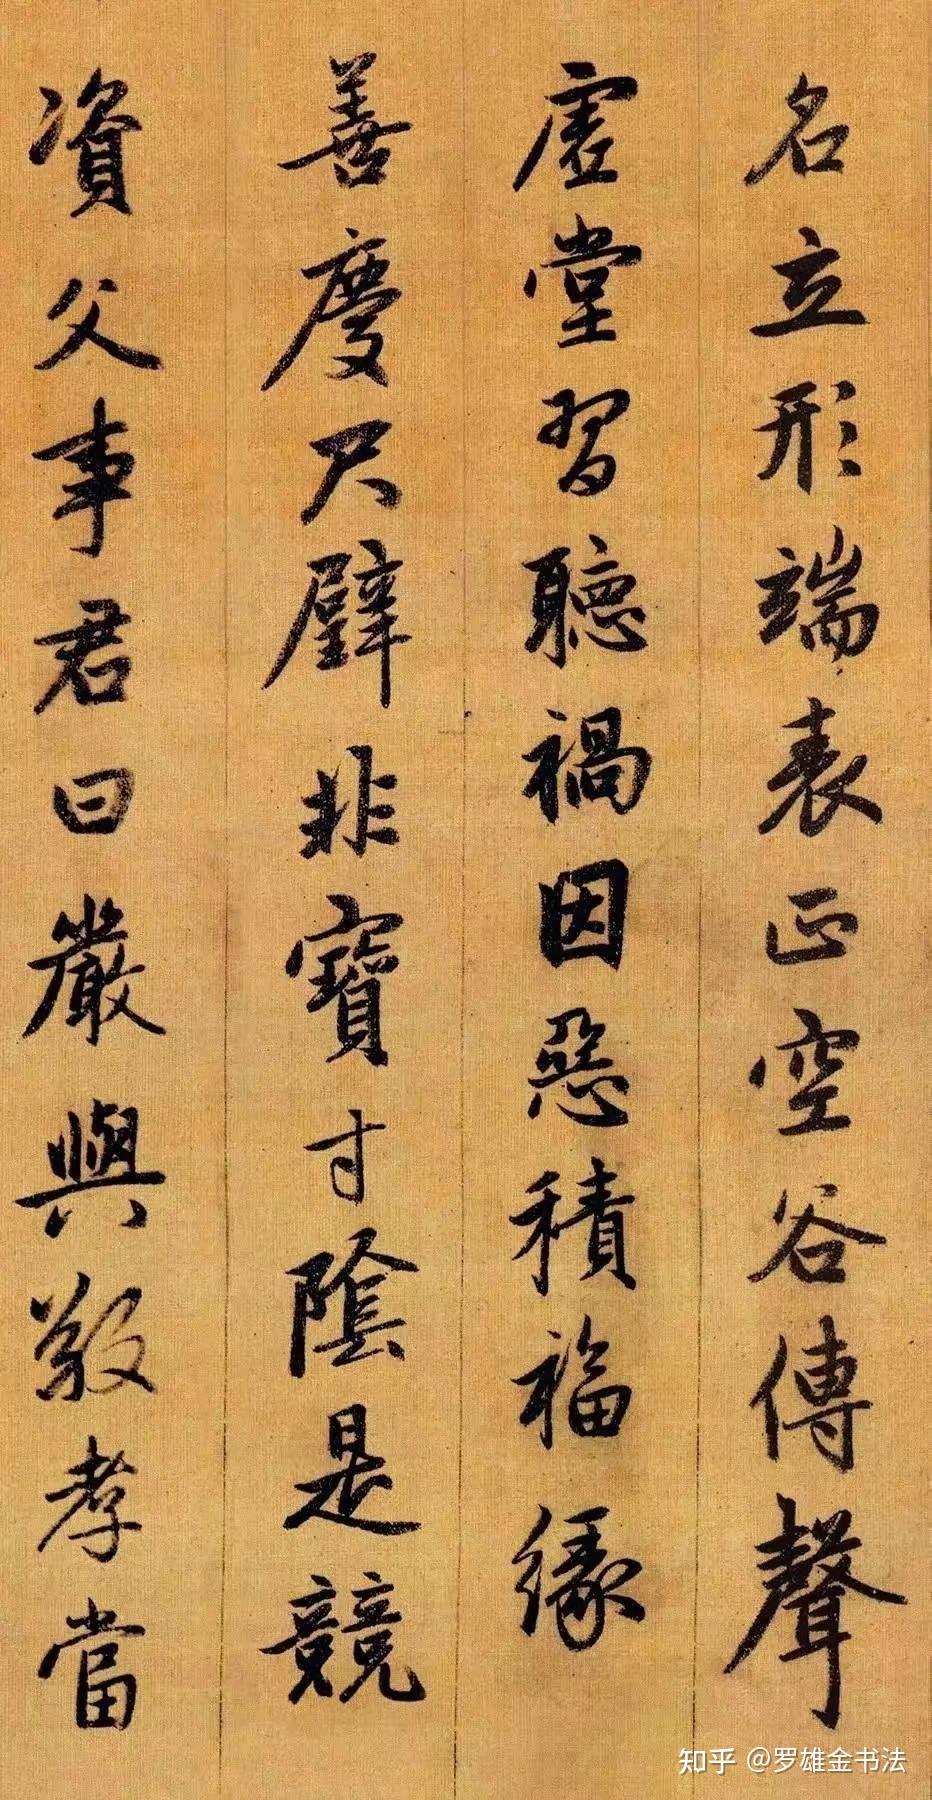 名立形端表正空谷傳聲
虛堂習聽禍因惡積福緣
善慶尺璧非寶寸陰是競
資父事君曰嚴與敬孝當
知乎 @罗雄金书法